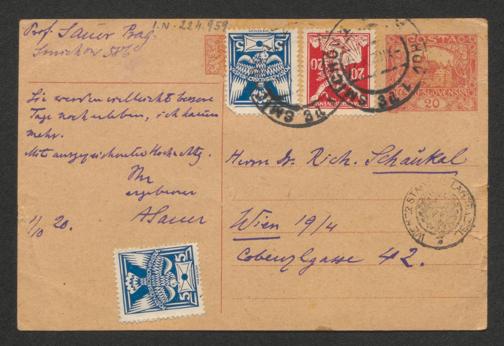 Prof. Sauer Prag.
Smichov 586
I.N. 224.959
Sie werden vielleicht bessere
Tage noch erleben, ich kaum
mehr.
Mit ausgezeichneter Hochachtg.
Ihr
ergebener
ASauer
1/10 20.
Herrn Dr. Rich. Schaukal
Wien 19/4
Cobenzlgasse 42.
5 5
20 20
POSTA
20
5 5